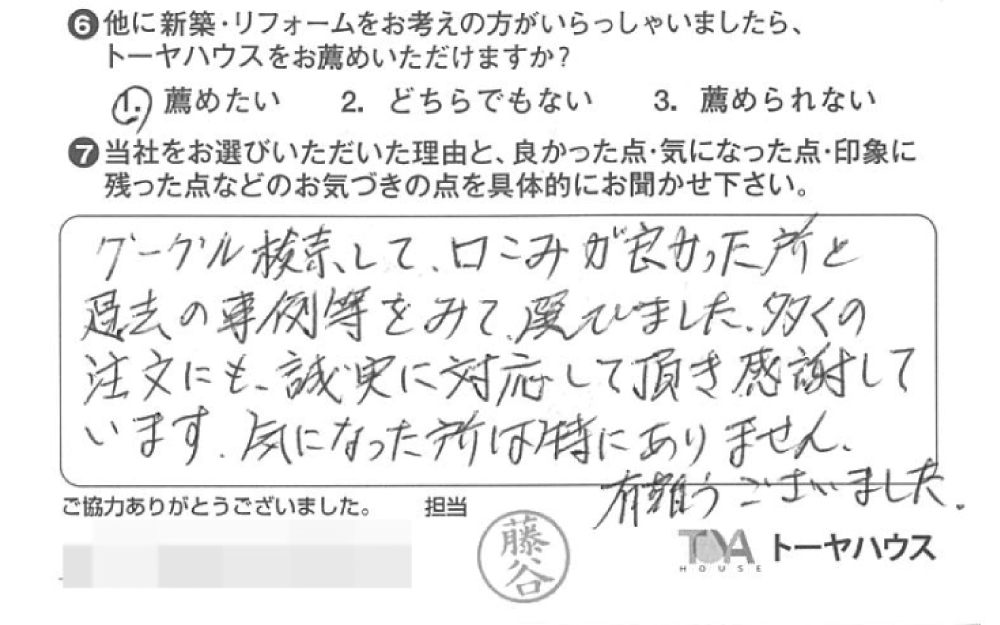 ❻他に新築・リフォームをお考えの方がいらっしゃいましたら、
トーヤハウスをお薦めいただけますか?
1. 薦めたい　2. どちらでもない　3. 薦められない
❼当社をお選びいただいた理由と、良かった点・気になった点・印象に
残った点などのお気づきの点を具体的にお聞かせ下さい。
グーグル検索して、口こみが良かった所と
過去の事例等をみて、選びました。多くの
注文にも、誠実に対応して頂き感謝して
います。気になった所は特にありません。
有難うございました。
ご協力ありがとうございました。　担当
藤谷
TOYA HOUSE トーヤハウス